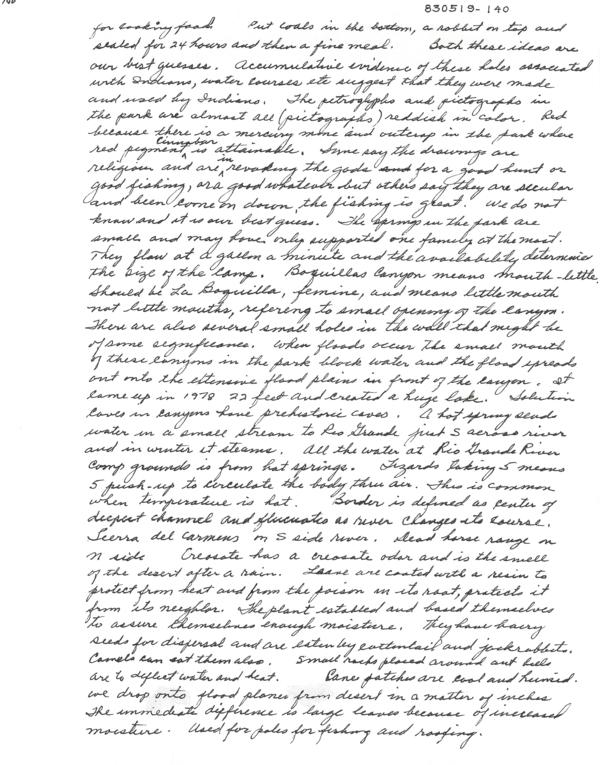 830519-140
for cooking food. Put coals in the bottom, a rabbit on top and
sealed for 24 hours and then a fine meal. Both these ideas are
our best guesses. Accumulative evidence of these holes associated
with Indians, water courses etc suggest that they were made
and used by Indians. The petroglyphs and pictographs in
the park are almost all (pictographs) reddish in color. Red
because there is a mercury mine and outcrop in the park where
red pigment cinnabar is attainable. Some say the drawings are
religious and are in revoking the gods and for a good hunt or
good fishing, or a good whatever but others say they are secular
and been come on down, the fishing is great. We do not
know and it is our best guess. The springs in the park are
small and may have only supported one family at the most.
They flow at a gallon a minute and the availability determine
the size of the camp. Boquillas Canyon means mouth-little.
Should be La Boquilla, femine, and means little mouth
not little mouths, refering to small opening of the canyon.
There are also several small holes in the wall that might be
of some significance. When floods occur the small mouth
of these canyons in the park block water and the flood spreads
out onto the extensive flood plains in front of the canyon. It
came up in 1978 22 feet and created a huge lake. Solution
caves in canyons have prehistoric caves. A hot spring sends
water in a small stream to Rio Grande just S across river
and in winter it steams. All the water at Rio Grande River
Camp grounds is from hot springs. Lizards taking 5 means
5 push-up to circulate the body thru air. This is common
when temperature is hot. Border is defined as center of
deepest channel and flucuates as river changes its course.
Sierra del Carmens on S side river. Dead horse range on
N side Creosote has a creosote odor and is the smell
of the desert after a rain. Leave are coated with a resin to
protect from heat and from the poison in its root, protects it
from its neighbor. The plant establed and based themselves
to assure themselves enough moisture. They have hairy
seeds for dispersal and are eaten by cottontail and jackrabbits.
Camels can eat them also. Small rocks placed around ant
are to deflect water and heat. Cane patches are cool and humid.
We drop onto flood planes from desert in a matter of inches
The immediate difference is large leaves because of increased
moisture. Used for poles for fishing and roofing.